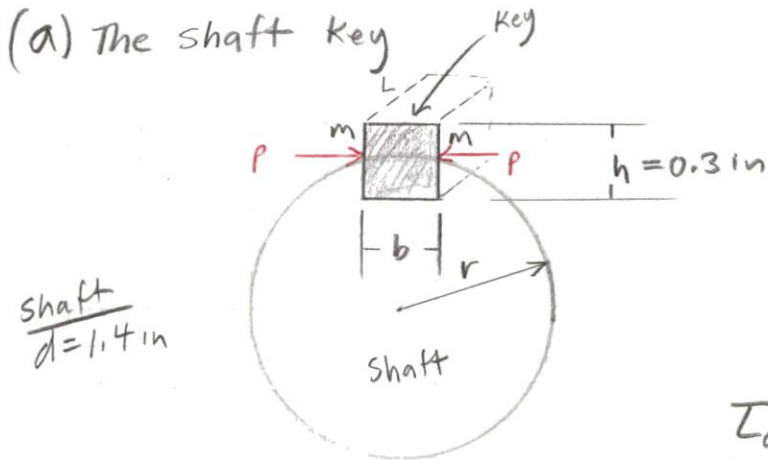 (a) The shaft key
Key
L
m m
P P
h = 0.3 in
b
r
shaft
d=1.4 in
shaft